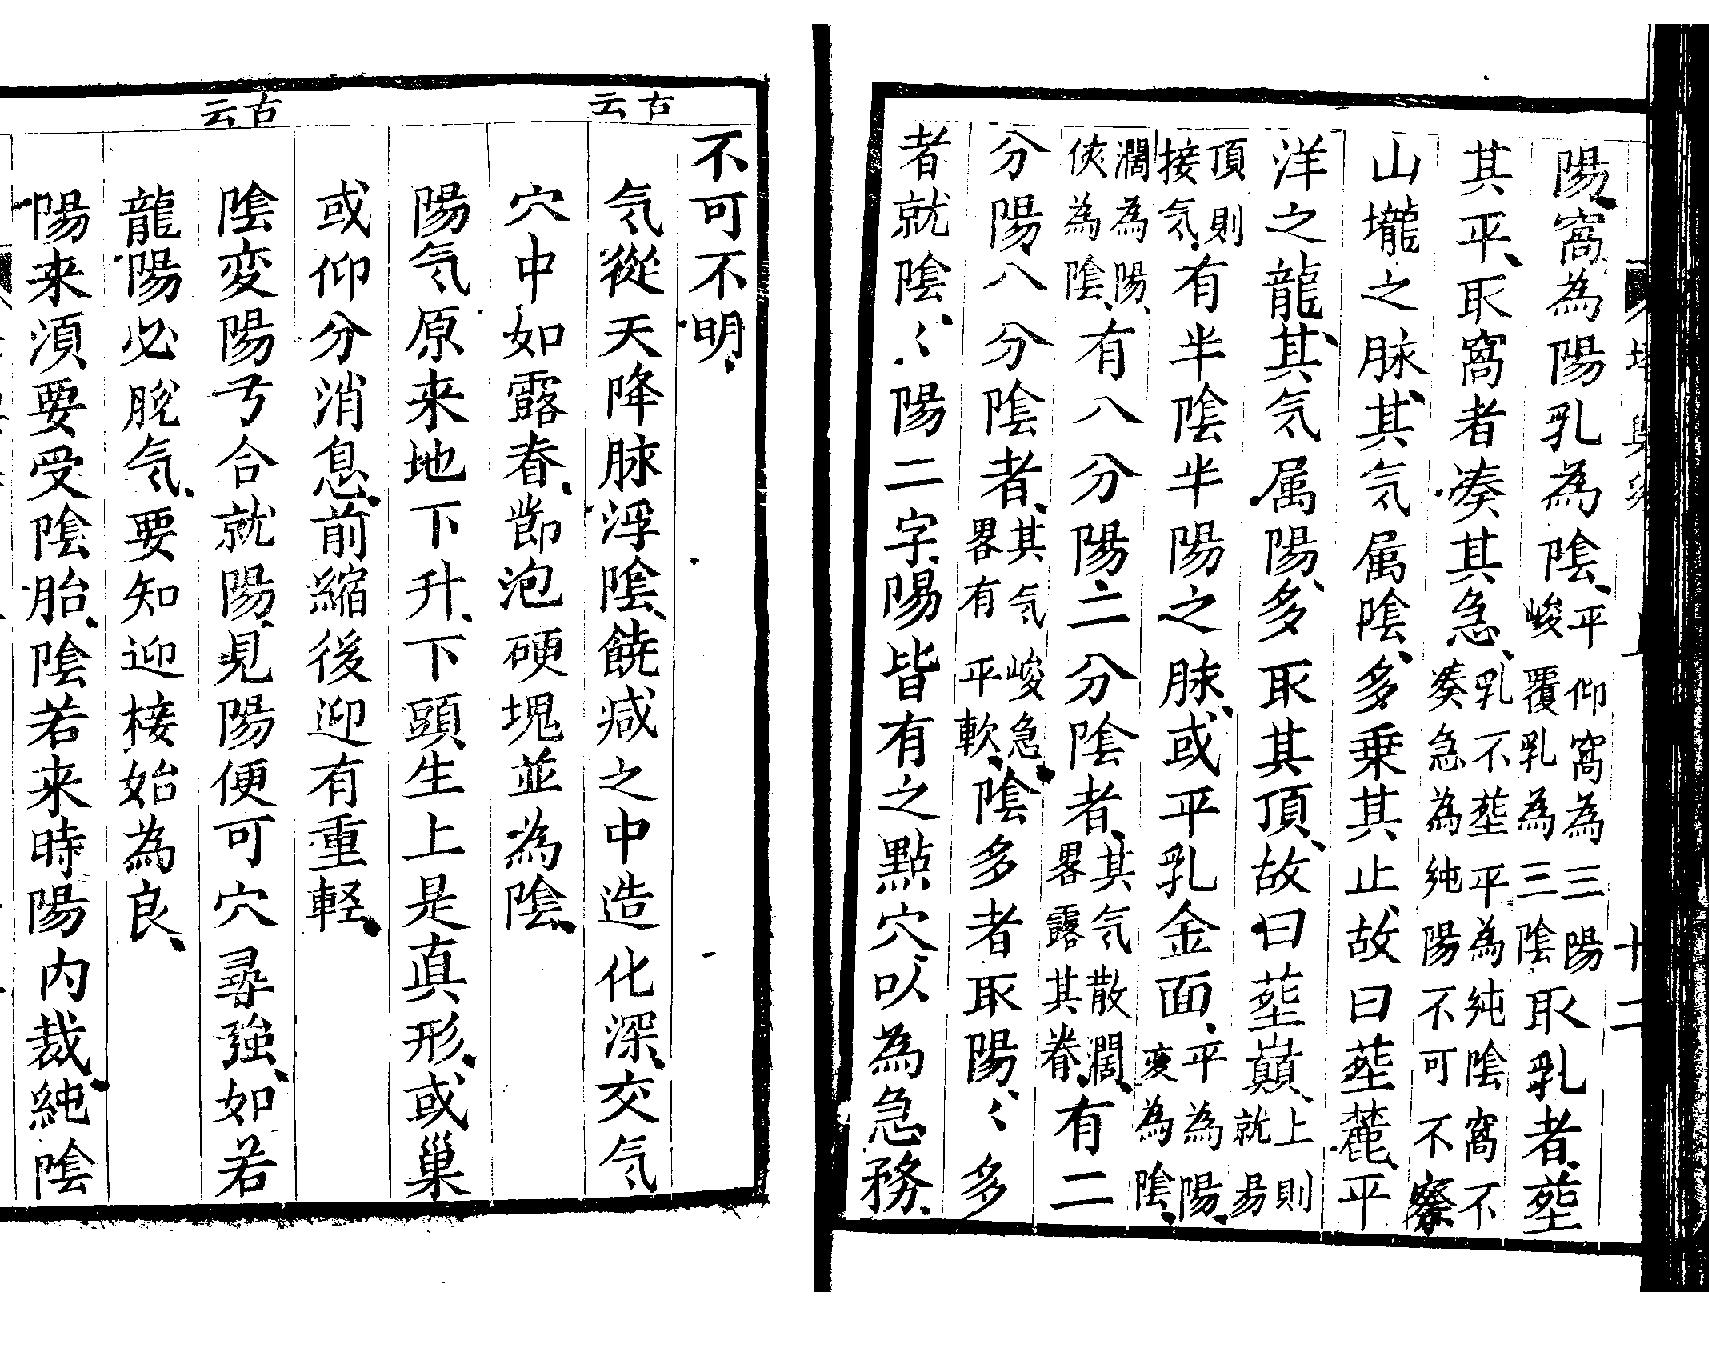 陽窩為陽乳為陰、平仰窩為三陽峻覆乳為三陰取乳者、塟
其平、取窩者凑其急、乳不塟平為純陰窩不凑急為純陽不可不察
山壠之脉、其気属陰、多乗其止、故曰塟麓、平
洋之龍、其気属陽、多取其頂、故曰塟巔、上則就易
頂則接気、有半陰半陽之脉、或平乳金面、平為陽、変為陰、
濶為陽、俠為陰、有八分陽二分陰者、其気散闊、畧露其眷、有二
分陽八分陰者、其気峻急、畧有平軟、陰多者取陽、〻多
者就陰、〻陽二字、陽皆有之點穴以為急務、
十二
不可不明、
古云
気從天降脉浮陰、饒减之中造化深、交気
穴中如露眷、節泡硬塊並為陰、
陽気原来地下升、下頭生上是真形、或巢
或仰分消息、前縮後迎有重軽、
古云
陰変陽兮合就陽、見陽便可穴尋強、如若
龍陽必脫気、要知迎接始為良、
陽来湏要受陰胎、陰若来時陽内裁、純陰